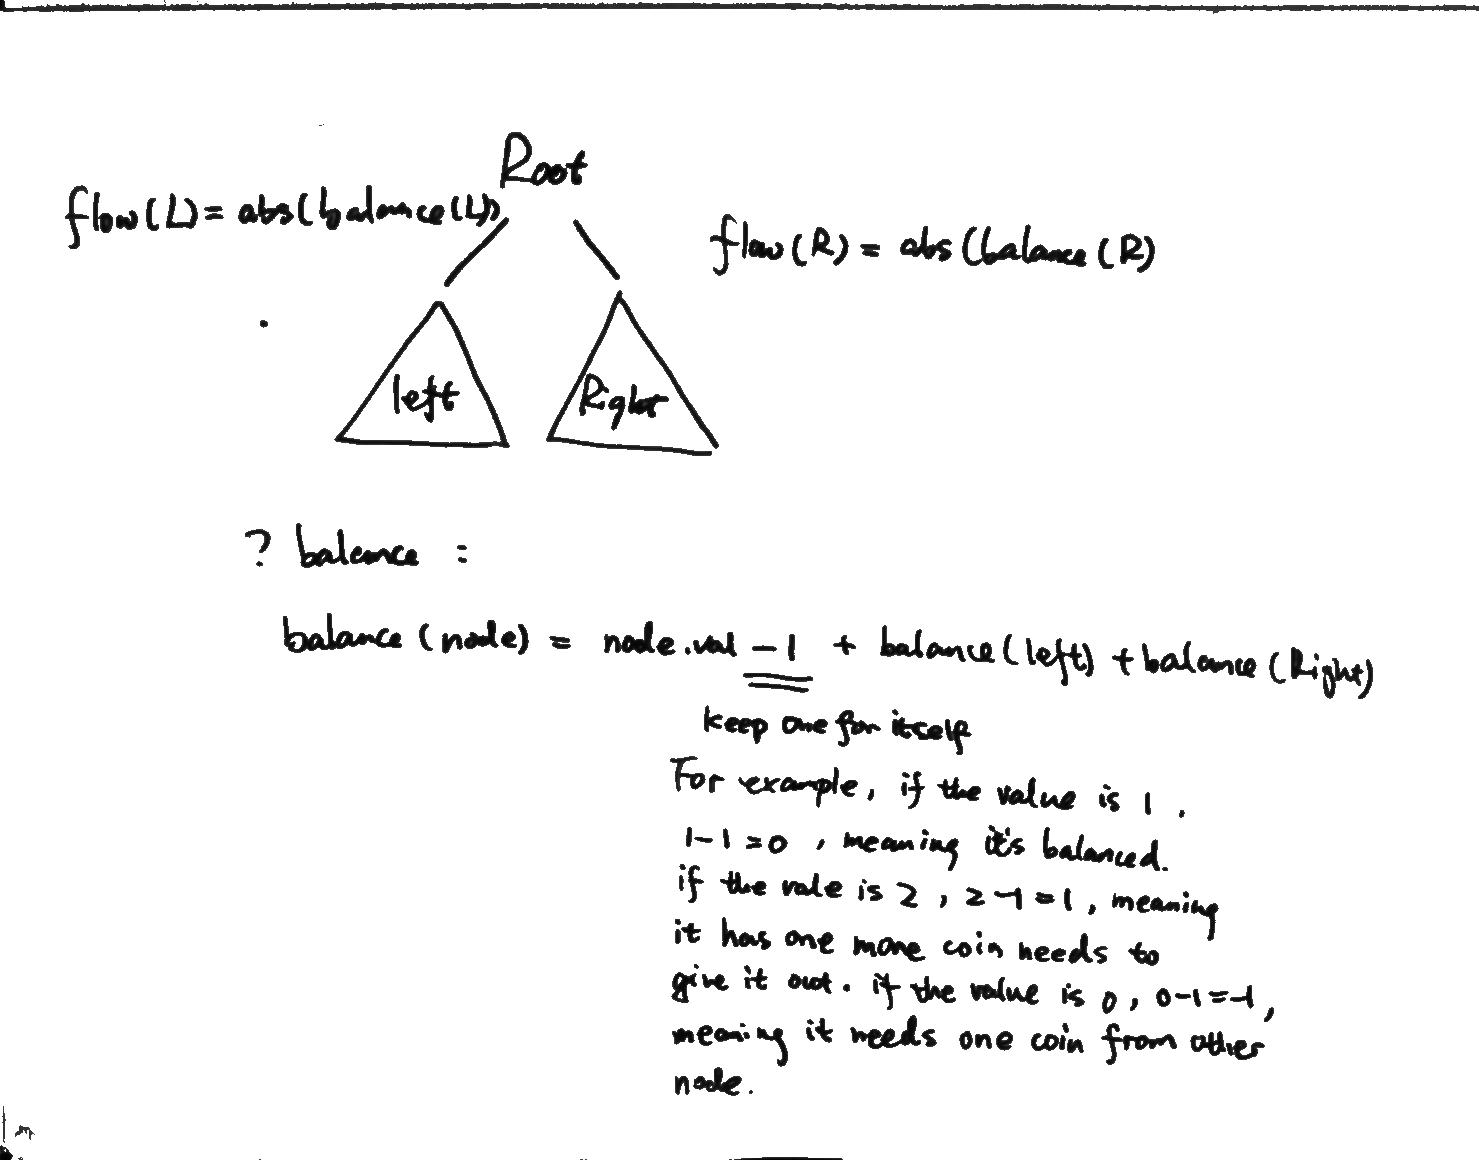 Root
flow(L) = abs(balance(L))
flow(R) = abs(balance(R)
left
Right
? balance :
balance(node) = node.val - 1 + balance(left) + balance(Right)
keep one for itself
For example, if the value is 1 ,
1-1=0 , meaning it's balanced.
if the vale is 2 , 2-1=1, meaning
it has one more coin needs to
give it out. if the value is 0, 0-1=-1,
meaning it needs one coin from other
node.